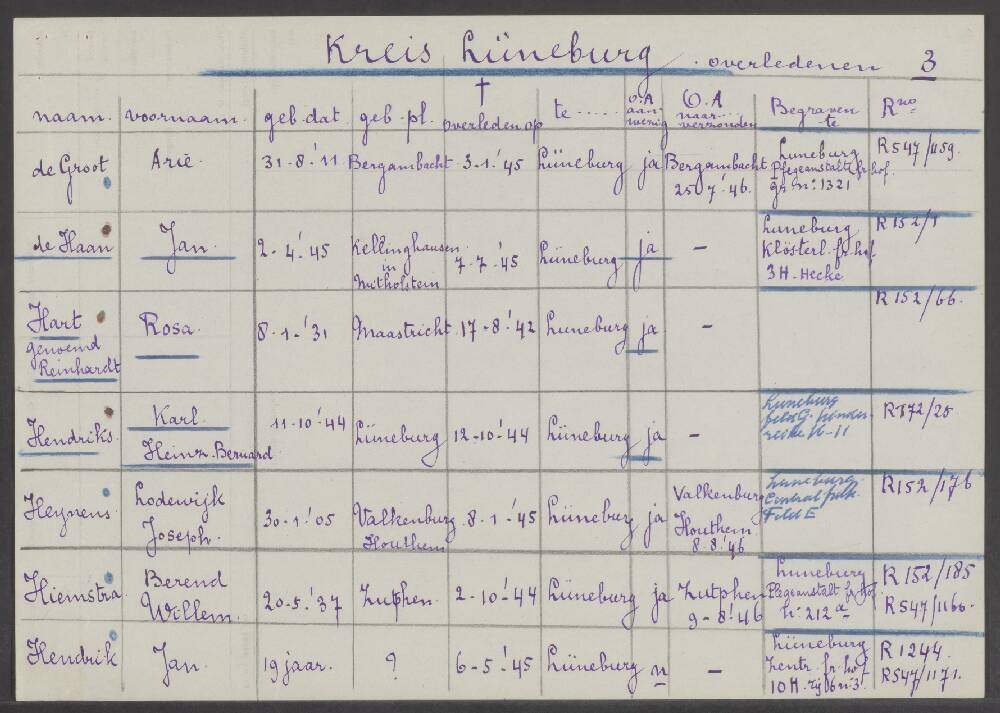 Kreis Lüneburg. overledenen 3
naam. voornaam. geb. dat. geb. pl. † overleden op te ..... O.A. aan-wezig O.A. naar verzonden Begraven te R no
de Groot Arie. 31-8-'11 Bergambacht 3-1-'45 Lüneburg ja Bergambacht 25-7-'46. Luneburg Plegeanstalt fr. hof. gr. No 1321 R547/1159.
de Haan Jan. 2-4-'45 Kellinghausen in Witholstein 7-7-'45 Lüneburg ja - Luneburg Klösterl. fr. hof 3H-Hecke R152/1
Hart genoemd Reinhardt Rosa. 8-1-'31 Maastricht 17-8-'42 Luneburg ja - R152/66.
Hendriks. Karl. Heinz. Bernard 11-10-'44 Lüneburg 12-10-'44 Lüneburg ja - Luneburg R172/25
Heynens. Lodewijk Joseph. 30-1-'05 Valkenburg Houthem 8-1-'45 Lüneburg ja Valkenburg Houthem 8-8-'46 Luneburg Central Feld E R152/176
Hiemstra. Berend Willem. 20-5-'37 Zutphen. 2-10-'44 Lüneburg ja Zutphen 9-8-'46 Luneburg Plegeanstalt fr. hof. No 212a R152/185 R547/1166.
Hendrik Jan. 19 jaar. ? 6-5-'45 Lüneburg n - Lüneburg Zentr. fr. hof 10H-rij 6 n-3. R1244. R547/1171.